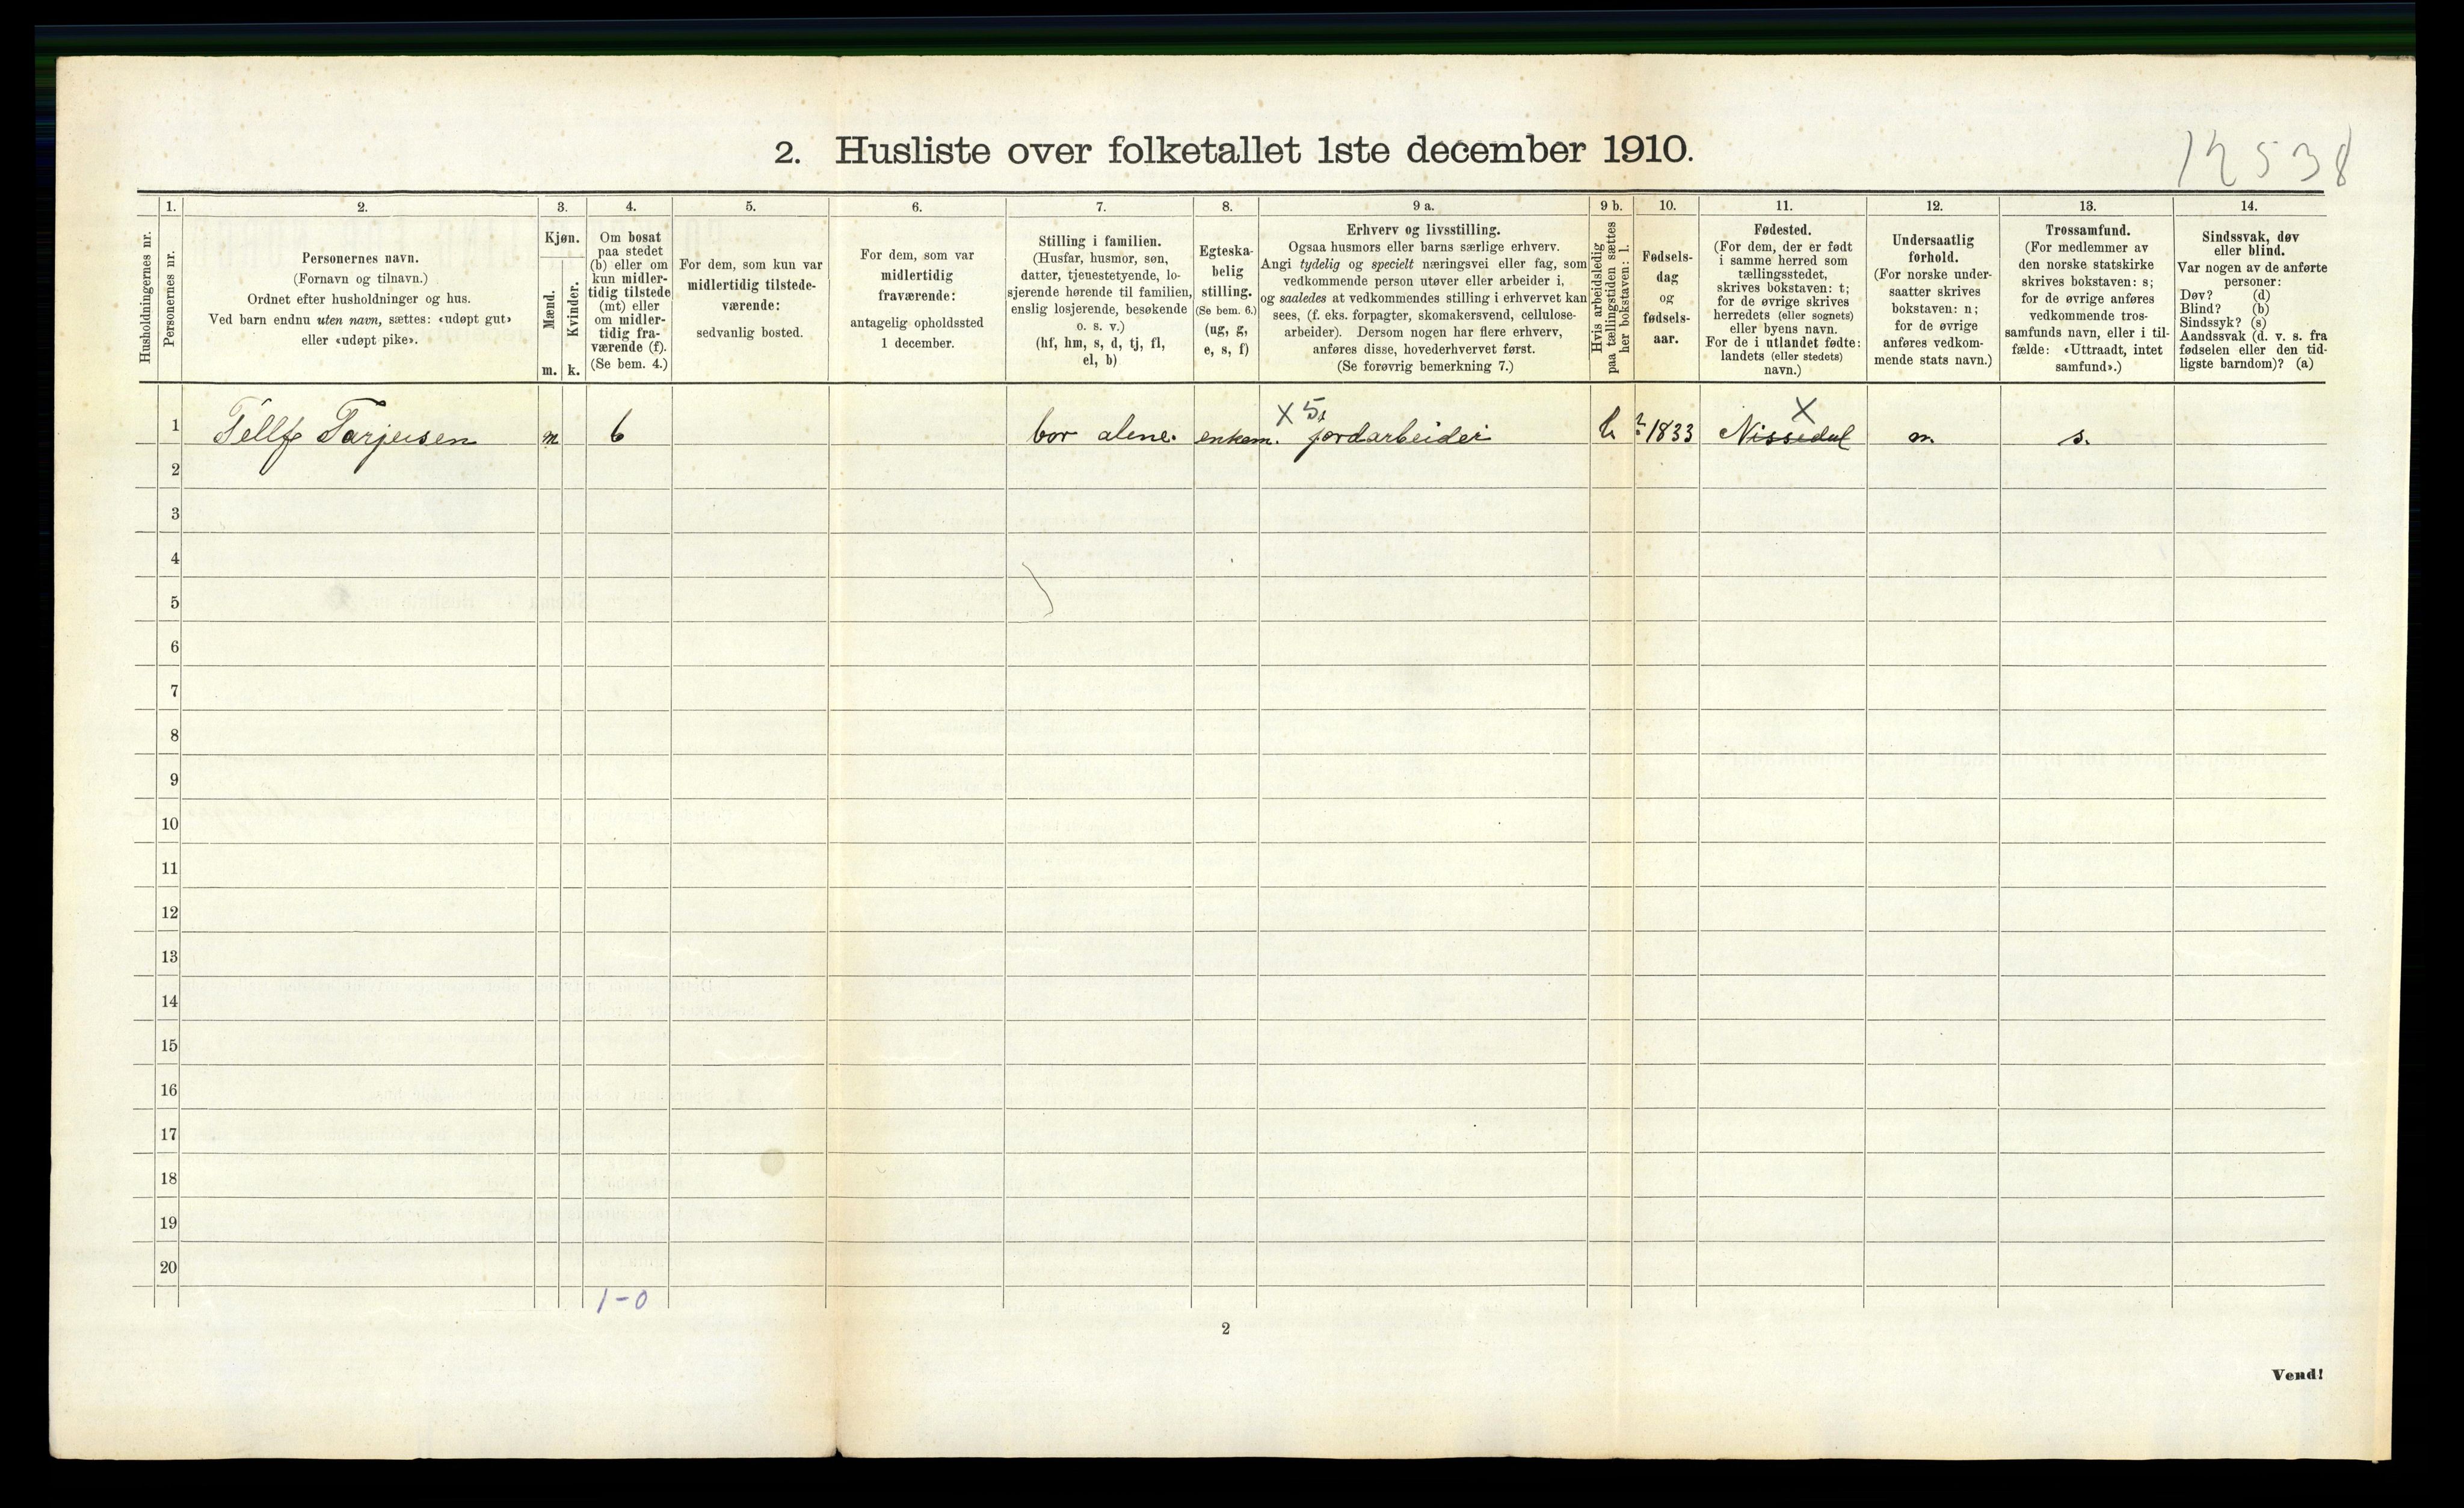 2. Husliste over folketallet 1ste december 1910.
12538
1.
2.
3.
4.
5.
6.
7.
8.
9 a.
9 b.
10.
11.
12.
13.
14.
Husholdningernes nr.
Personernes nr.
Personernes navn.
(Fornavn og tilnavn.)
Ordnet efter husholdninger og hus.
Ved barn endnu uten navn, sættes: «udøpt gut»
eller «udøpt pike».
Kjøn.
Mænd.
Kvinder.
m.
k.
Om bosat
paa stedet
(b) eller om
kun midler-
tidig tilstede
(mt) eller
om midler-
tidig fra-
værende (f).
(Se bem. 4.)
For dem, som kun var
midlertidig tilstede-
værende:
sedvanlig bosted.
For dem, som var
midlertidig
fraværende:
antagelig opholdssted
1 december.
Stilling i familien.
(Husfar, husmor, søn,
datter, tjenestetyende, lo-
sjerende hørende til familien,
enslig losjerende, besøkende
o. s. v.)
(hf, hm, s, d, tj, fl,
el, b)
Egteska-
belig
stilling.
(Se bem. 6.)
(ug, g,
e, s, f)
Erhverv og livsstilling.
Ogsaa husmors eller barns særlige erhverv.
Angi tydelig og specielt næringsvei eller fag, som
vedkommende person utøver eller arbeider i,
og saaledes at vedkommendes stilling i erhvervet kan
sees, (f. eks. forpagter, skomakersvend, cellulose-
arbeider). Dersom nogen har flere erhverv,
anføres disse, hovederhvervet først.
(Se forøvrig bemerkning 7.)
Hvis arbeidsledig
paa tællingstiden sættes
her bokstaven: l.
Fødsels-
dag
og
fødsels-
aar.
Fødested.
(For dem, der er født
i samme herred som
tællingsstedet,
skrives bokstaven: t;
for de øvrige skrives
herredets (eller sognets)
eller byens navn.
For de i utlandet fødte:
landets (eller stedets)
navn.)
Undersaatlig
forhold.
(For norske under-
saatter skrives
bokstaven: n;
for de øvrige
anføres vedkom-
mende stats navn.)
Trossamfund.
(For medlemmer av
den norske statskirke
skrives bokstaven: s;
for de øvrige anføres
vedkommende tros-
samfunds navn, eller i til-
fælde: «Uttraadt, intet
samfund».)
Sindssvak, døv
eller blind.
Var nogen av de anførte
personer:
Døv? (d)
Blind? (b)
Sindssyk? (s)
Aandssvak (d. v. s. fra
fødselen eller den tid-
ligste barndom)? (a)
X 5. X
1 Tellf Tarjeisen m b bor alene. enkem. jordarbeider l. ? 1833 Nissedal n. s.
2
3
4
5
6
7
8
9
10
11
12
13
14
15
16
17
18
19
20
1-0
2
Vend!